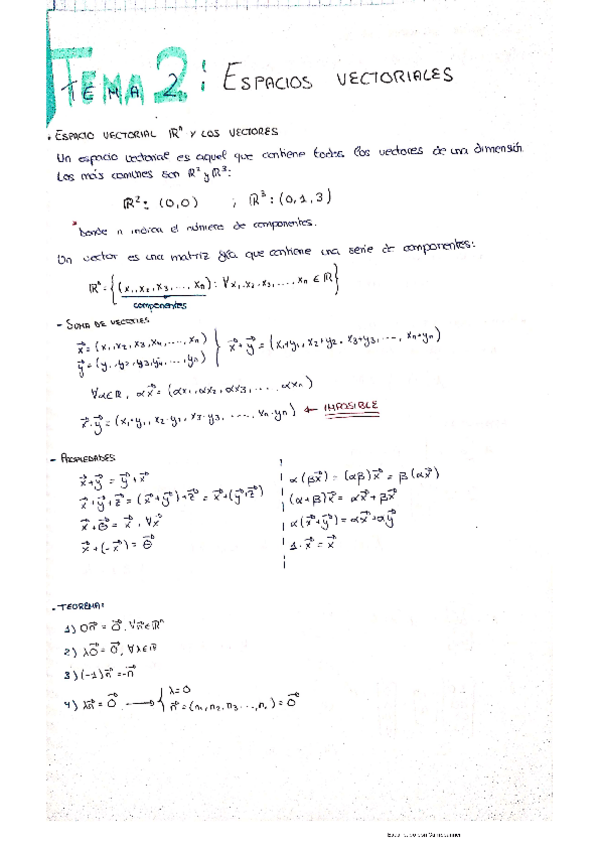 TEMA 2: ESPACIOS VECTORIALES
• ESPACIO VECTORIAL ℝⁿ Y LOS VECTORES
Un espacio vectorial es aquel que contiene todos los vectores de una dimensión.
Los más comunes son ℝ² y ℝ³:
ℝ²: (0,0) ; ℝ³: (0,1,3)
* Donde n indica el número de componentes.
Un vector es una matriz fila que contiene una serie de componentes:
ℝⁿ = {(x₁, x₂, x₃, ..., xₙ): ∀x₁, x₂, x₃, ..., xₙ ∈ ℝ}
componentes
- SUMA DE VECTORES
x⃗ = (x₁, x₂, x₃, x₄, ..., xₙ)
y⃗ = (y₁, y₂, y₃, y₄, ..., yₙ) } x⃗+y⃗ = (x₁+y₁, x₂+y₂, x₃+y₃, ..., xₙ+yₙ)
∀α∈ℝ, αx⃗ = (αx₁, αx₂, αx₃, ..., αxₙ)
x⃗·y⃗ = (x₁·y₁, x₂·y₂, x₃·y₃, ..., xₙ·yₙ) ← IMPOSIBLE
- PROPIEDADES
x⃗+y⃗ = y⃗+x⃗
x⃗+y⃗+z⃗ = (x⃗+y⃗)+z⃗ = x⃗+(y⃗+z⃗)
x⃗+θ⃗ = x⃗, ∀x⃗
x⃗+(-x⃗) = θ⃗
α(βx⃗) = (αβ)x⃗ = β(αx⃗)
(α+β)x⃗ = αx⃗+βx⃗
α(x⃗+y⃗) = αx⃗+αy⃗
1·x⃗ = x⃗
• TEOREMA:
1) 0n⃗ = 0⃗, ∀n⃗∈ℝⁿ
2) λ0⃗ = 0⃗, ∀λ∈ℝ
3) (-1)n⃗ = -n⃗
4) λn⃗ = 0⃗ → { λ=0
n⃗ = (n₁, n₂, n₃, ..., n.) = 0⃗